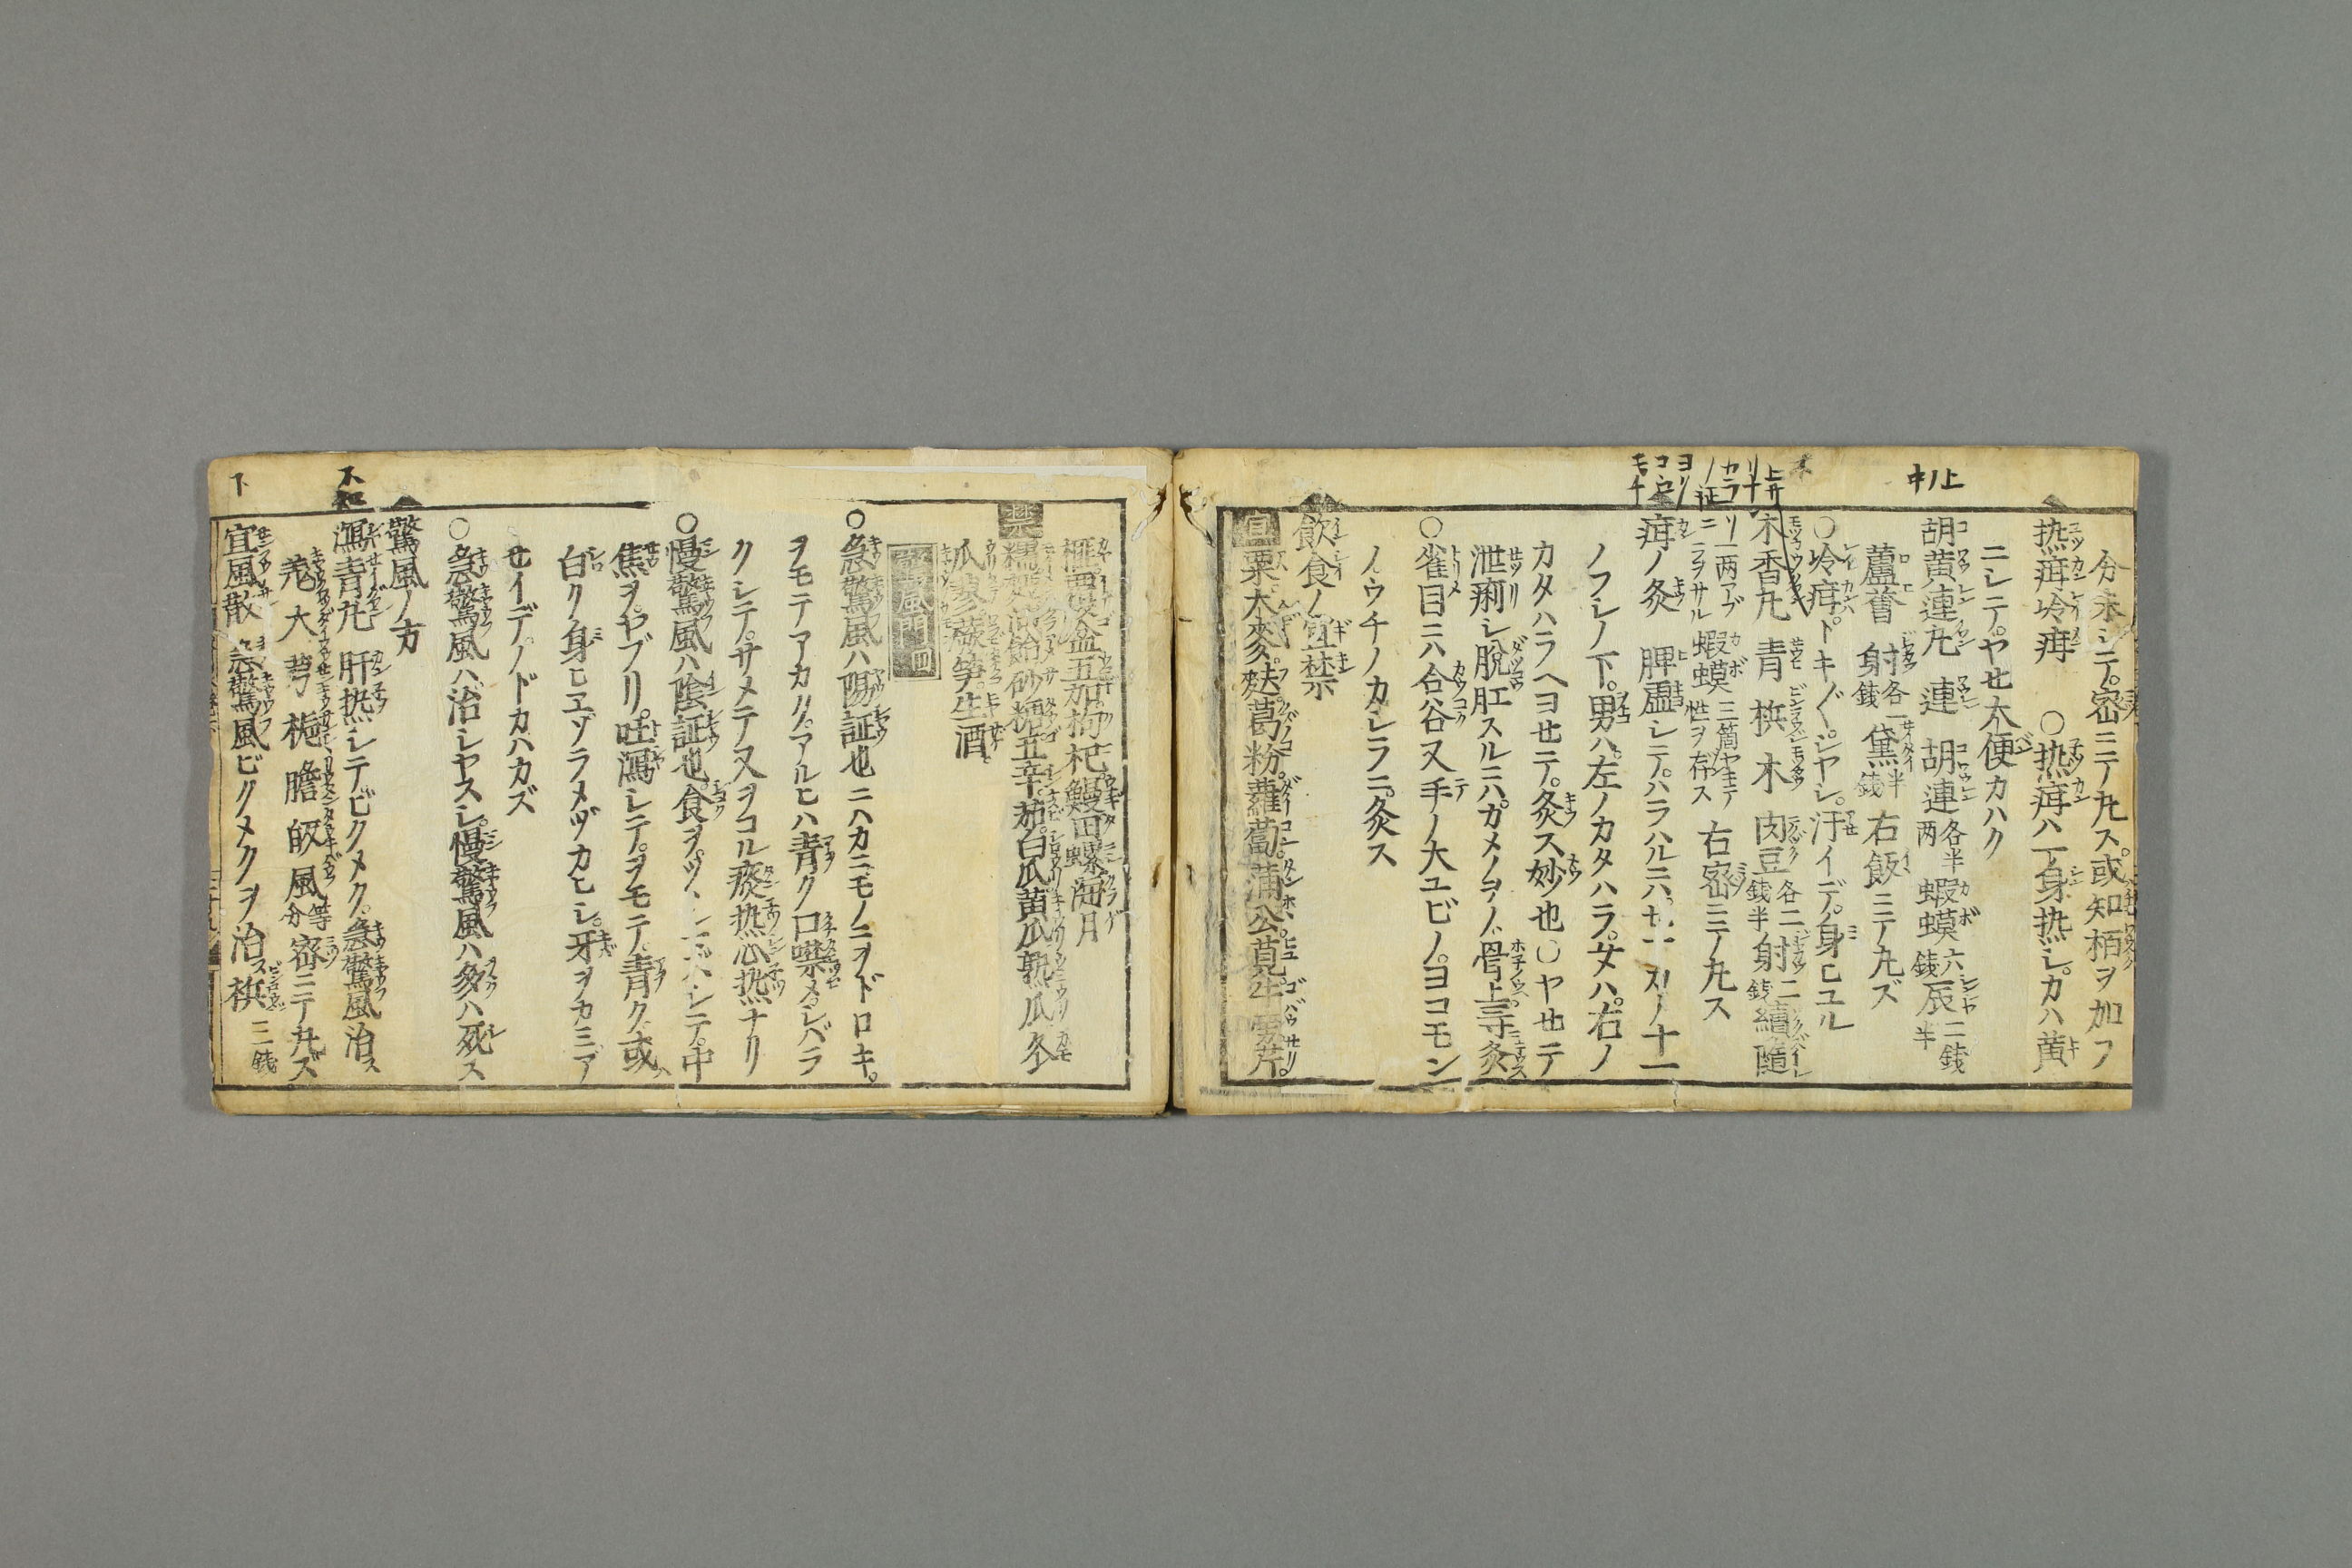 分末シテ。密ニテ丸ス。或知栢ヲ加フ
热疳冷疳　○热疳ハ一身热シ。カハ黄
ニシテ。ヤセ大便カハク
胡黄連丸　連　胡連各半两　蝦蟆六銭　辰二銭半
蘆薈　射各一銭　黛半銭　右飯ニテ丸ズ
○冷疳。トキ〴〵。シヤシ。汗イデ。身ヒユル
木香丸　青　梹　木　肉豆各二銭半　射二銭　續隨
一两アブラヲサル　蝦蟆三箇ヤキテ性ヲ存ス　右密ニテ丸ス
疳ノ灸　脾虚シテ。ハラハルニハ。
ノフシノ下。男ハ。左ノカタハラ。女ハ。右ノ
カタハラヘヨセテ。灸ス妙也○ヤセテ
泄痢シ脫肛スルニハ。カメノヲノ骨上ニ
○雀目ニハ合谷又手ノ大ユビノ。ヨコモン
ノウチノカシラニ。灸ス
飲食ノ宜禁
宜　粟大麥。麸。葛粉。蘿蔔。蒲公。莧。牛蒡芹。
五加枸杞。鰻田螺海月
禁　飴砂糖五辛。茄。白瓜黄瓜熟瓜冬
瓜蓼蕨笋生酒
驚風門四
○急驚風ハ陽証也ニハカニモノニヲドロキ。
ヲモテアカク。アルヒハ青ク口噤メ。レバラ
クシテ。サメテ又ヲコル痰热心热ナリ
○慢驚風ハ陰証也。食ヲ。シテ。中
焦ヲ。ヤブリ。吐瀉シテ。ヲモテ。青ク。或ハ
白ク身ヒヱソラメヅカヒシ。牙ヲカミア
セイデ。ノドカハカズ
○急驚風ハ。治シヤスシ。慢驚風ハ多ハ死ス
驚風ノ方
瀉青丸　肝热シテビクメク。急驚風治ス
羗　大　芎　梔　膽　皈　風等分　密ニテ丸ズ
宜風散　急驚風ビクメクヲ治ス　梹二銭